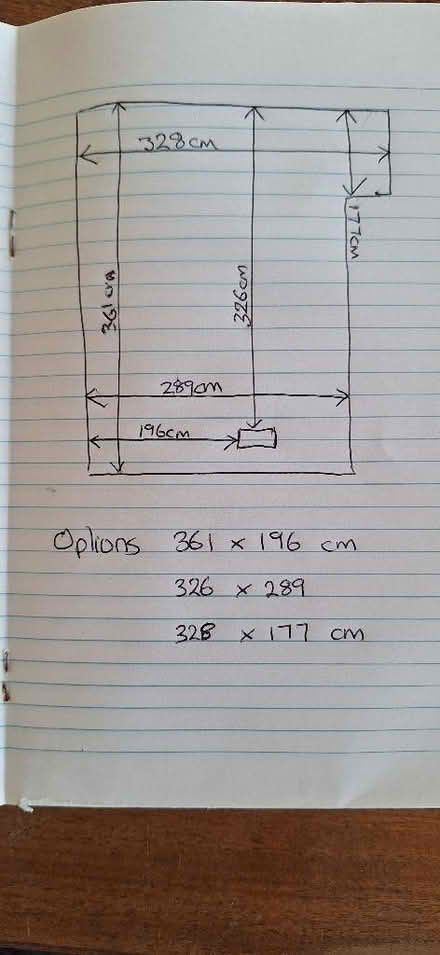 328cm
177cm
361cm
326cm
289cm
196cm
Options 361 x 196 cm
326 x 289
328 x 177 cm